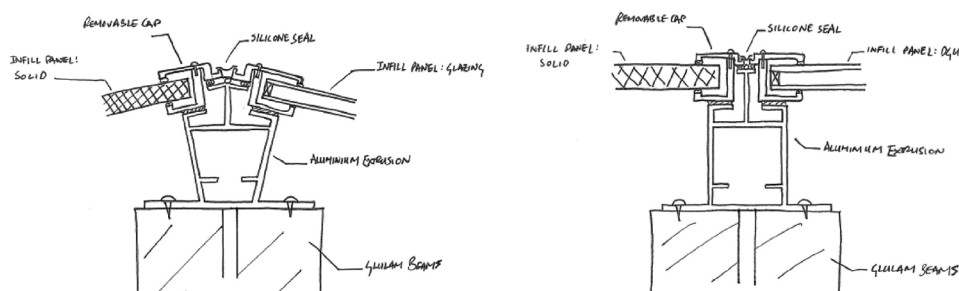 REMOVABLE CAP
SILICONE SEAL
INFILL PANEL:
SOLID
INFILL PANEL: GLAZING
ALUMINIUM EXTRUSION
GLULAM BEAMS
REMOVABLE CAP
SILICONE SEAL
INFILL PANEL:
SOLID
INFILL PANEL: DGU
ALUMINIUM EXTRUSION
GLULAM BEAMS